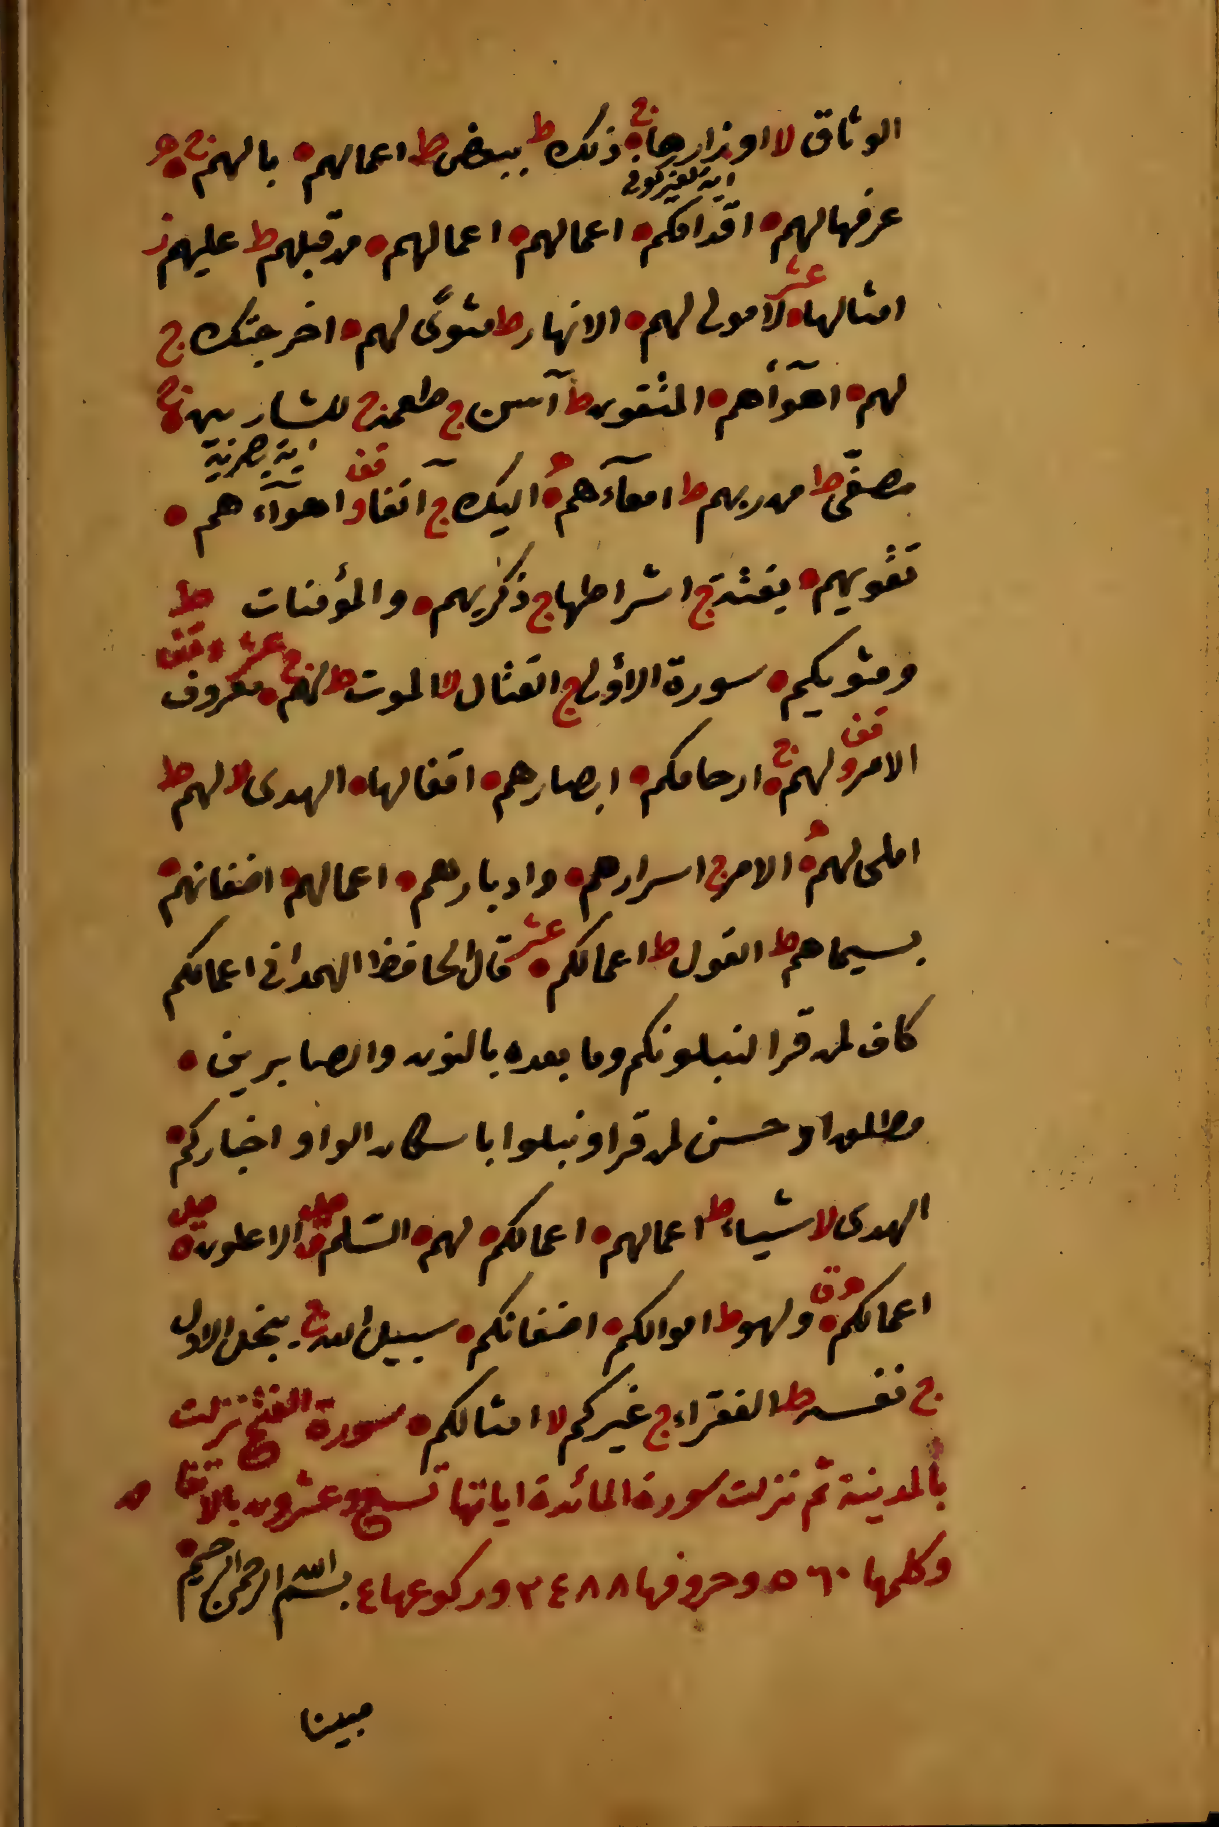 الوثاق لا اوزارها ج ذلك ط ببعض ط اعمالهم بالهم ج
اية لغير كوفى
عرفها لهم اقدامكم اعمالهم اعمالهم من قبلهم ط عليهم ز
عشر
امثالها لا مولى لهم الانهار ط مثوًى لهم اخرجتك ج
لهم اهوآأهم المتقون ط آسن ج طعمه ج للشاربين ج
اية بصرية
قف
مصفّى ط من ربهم ط امعآءهم اليك ج انفا و اهوآءهم
تقويهم بغتة ج اشراطها ج ذكريهم والمؤمنات ط
ومثويكم سورة الاول ج القتال لا الموت ط لهم ج معروف
عشر وقفا
قف
الامر و لهم ج ارحامكم ابصارهم اقفالها الهدى لا لهم ط
املى لهم الامر ج اسرارهم وادبارهم اعمالهم اضغانهم
عشر
بسيماهم ط القول ط اعمالكم قال الحافظ الهمدانى اعمالكم
كاف لمن قرا لنبلونكم وما بعده بالنون والصابرين
مطلق او حسن لمن قرا ونبلوا باسكان الواو اخباركم
الهدى لا شياء ط اعمالهم اعمالكم لهم السّلم ق صلى الاعلون صلى
اعمالكم ولهو ط اموالكم اضغانكم سبيل الله ج يبخل الاول
ج نفسه ط الفقراء ج غيركم لا امثالكم سورة الفتح نزلت
بالمدينة ثم نزلت سورة المائدة اياتها تسع وعشرون بالاتفا ق
وكلمها ٥٦٠ وحروفها ٢٤٨٨ وركوعها ٤ بسم الله الرحمن الرحيم
مبينا